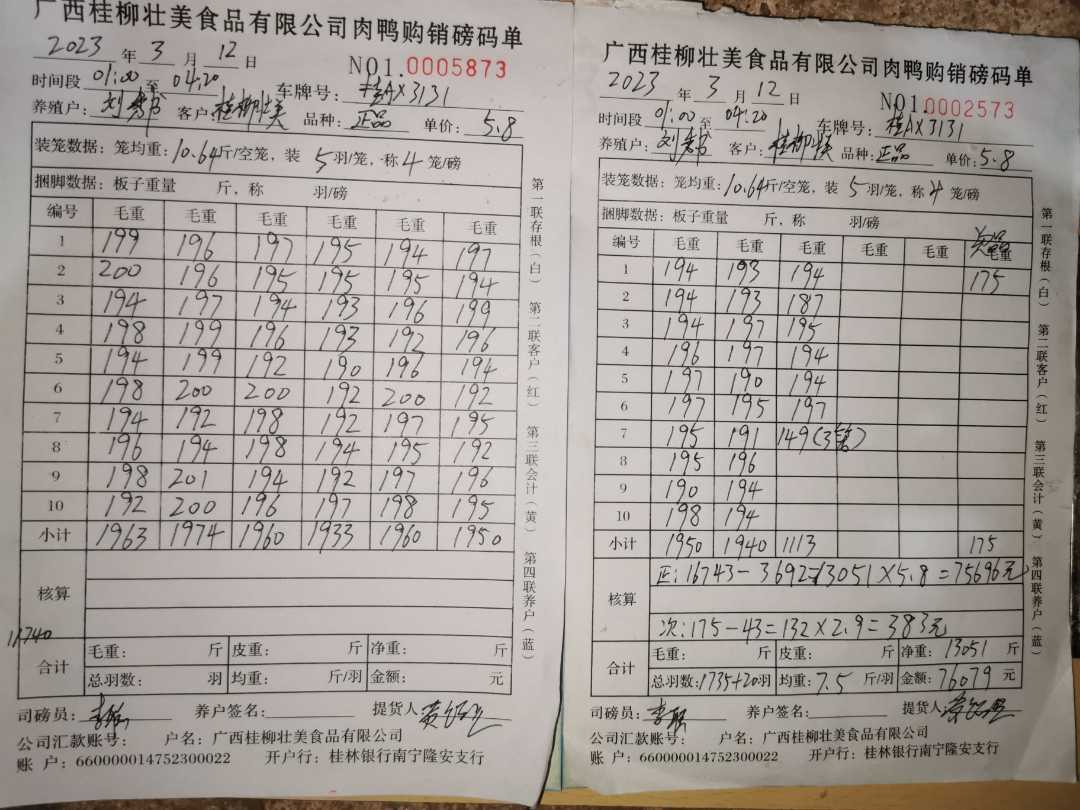 广西桂柳壮美食品有限公司肉鸭购销磅码单
2023 年 3 月 12 日 NO1.0005873
时间段 01:00 至 04:20 车牌号: 桂AX3131
养殖户: 刘 客户: 桂柳壮美 品种: 正品 单价: 5.8
装笼数据: 笼均重: 10.64斤/空笼, 装 5羽/笼, 称4 笼/磅
捆脚数据: 板子重量 斤, 称 羽/磅
编号 毛重 毛重 毛重 毛重 毛重 毛重
1 199 196 197 195 194 197
2 200 196 195 195 195 194
3 194 197 194 193 196 199
4 198 199 196 193 192 196
5 194 199 192 190 196 194
6 198 200 200 192 200 192
7 194 192 198 192 197 195
8 196 194 198 194 195 192
9 198 201 194 192 197 196
10 192 200 196 197 198 195
小计 1963 1974 1960 1933 1960 1950
核算
11740
合计 毛重: 斤 皮重: 斤 净重: 斤
总羽数: 羽 均重: 斤/羽 金额: 元
司磅员: 李 养户签名: 提货人: 黄
公司汇款账号: 户名: 广西桂柳壮美食品有限公司
账 户: 660000014752300022 开户行: 桂林银行南宁隆安支行
第一联存根(白) 第二联客户(红) 第三联会计(黄) 第四联养户(蓝)
广西桂柳壮美食品有限公司肉鸭购销磅码单
2023 年 3 月 12 日 NO1.0002573
时间段 01:00 至 04:20 车牌号: 桂AX3131
养殖户: 刘 客户: 桂柳壮美 品种: 正品 单价: 5.8
装笼数据: 笼均重: 10.64斤/空笼, 装 5羽/笼, 称4 笼/磅
捆脚数据: 板子重量 斤, 称 羽/磅
编号 毛重 毛重 毛重 毛重 毛重 毛重
1 194 193 194 175
2 194 193 187
3 194 197 195
4 196 197 194
5 197 190 194
6 197 195 197
7 195 191 149(3笼)
8 195 196
9 190 194
10 198 194
小计 1950 1940 1113 175
核算
正: 16743-3692=13051×5.8=75696元
次: 175-43=132×2.9=383元
合计 毛重: 斤 皮重: 斤 净重: 13051 斤
总羽数: 1735+20羽 均重: 7.5 斤/羽 金额: 76079 元
司磅员: 李 养户签名: 提货人: 黄
公司汇款账号: 户名: 广西桂柳壮美食品有限公司
账 户: 660000014752300022 开户行: 桂林银行南宁隆安支行
第一联存根(白) 第二联客户(红) 第三联会计(黄) 第四联养户(蓝)